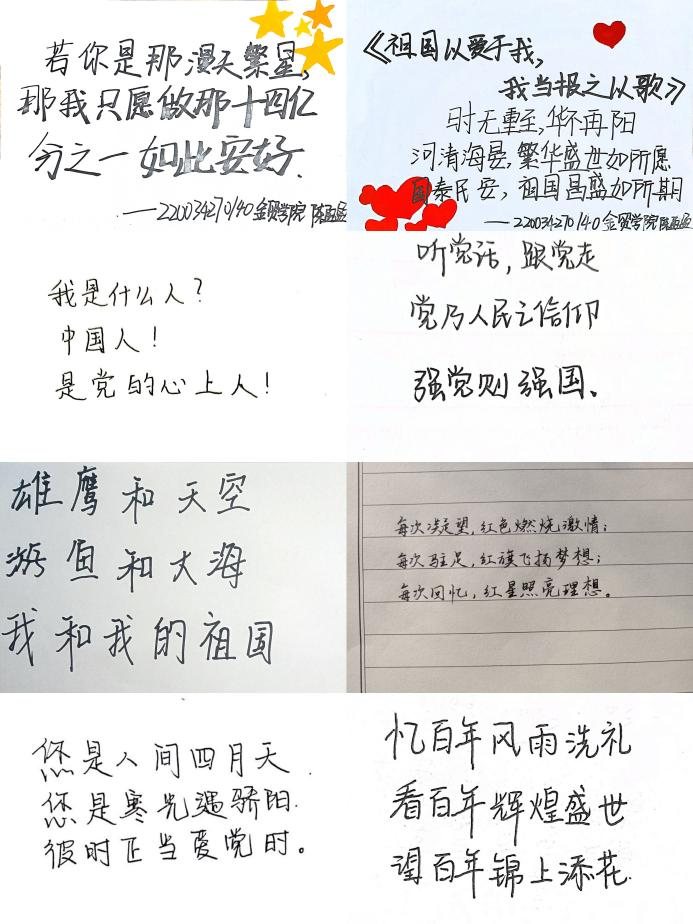 若你是那漫天繁星,
那我只愿做那十四亿
分之一如此安好.
——220034270140 金贸学院
《祖国以爱于我,
我当报之以歌》
时无重至,华不再阳
河清海晏,繁华盛世如所愿
国泰民安,祖国昌盛如所期
——220034270140 金贸学院
我是什么人?
中国人!
是党的心上人!
听党话,跟党走
党乃人民之信仰
强党则强国、
雄鹰和天空
游鱼和大海
我和我的祖国
每次凝望,红色燃烧激情;
每次驻足,红旗飞扬梦想;
每次回忆,红星照亮理想。
您是人间四月天.
您是寒光遇骄阳.
彼时正当爱党时。
忆百年风雨洗礼
看百年辉煌盛世
望百年锦上添花.